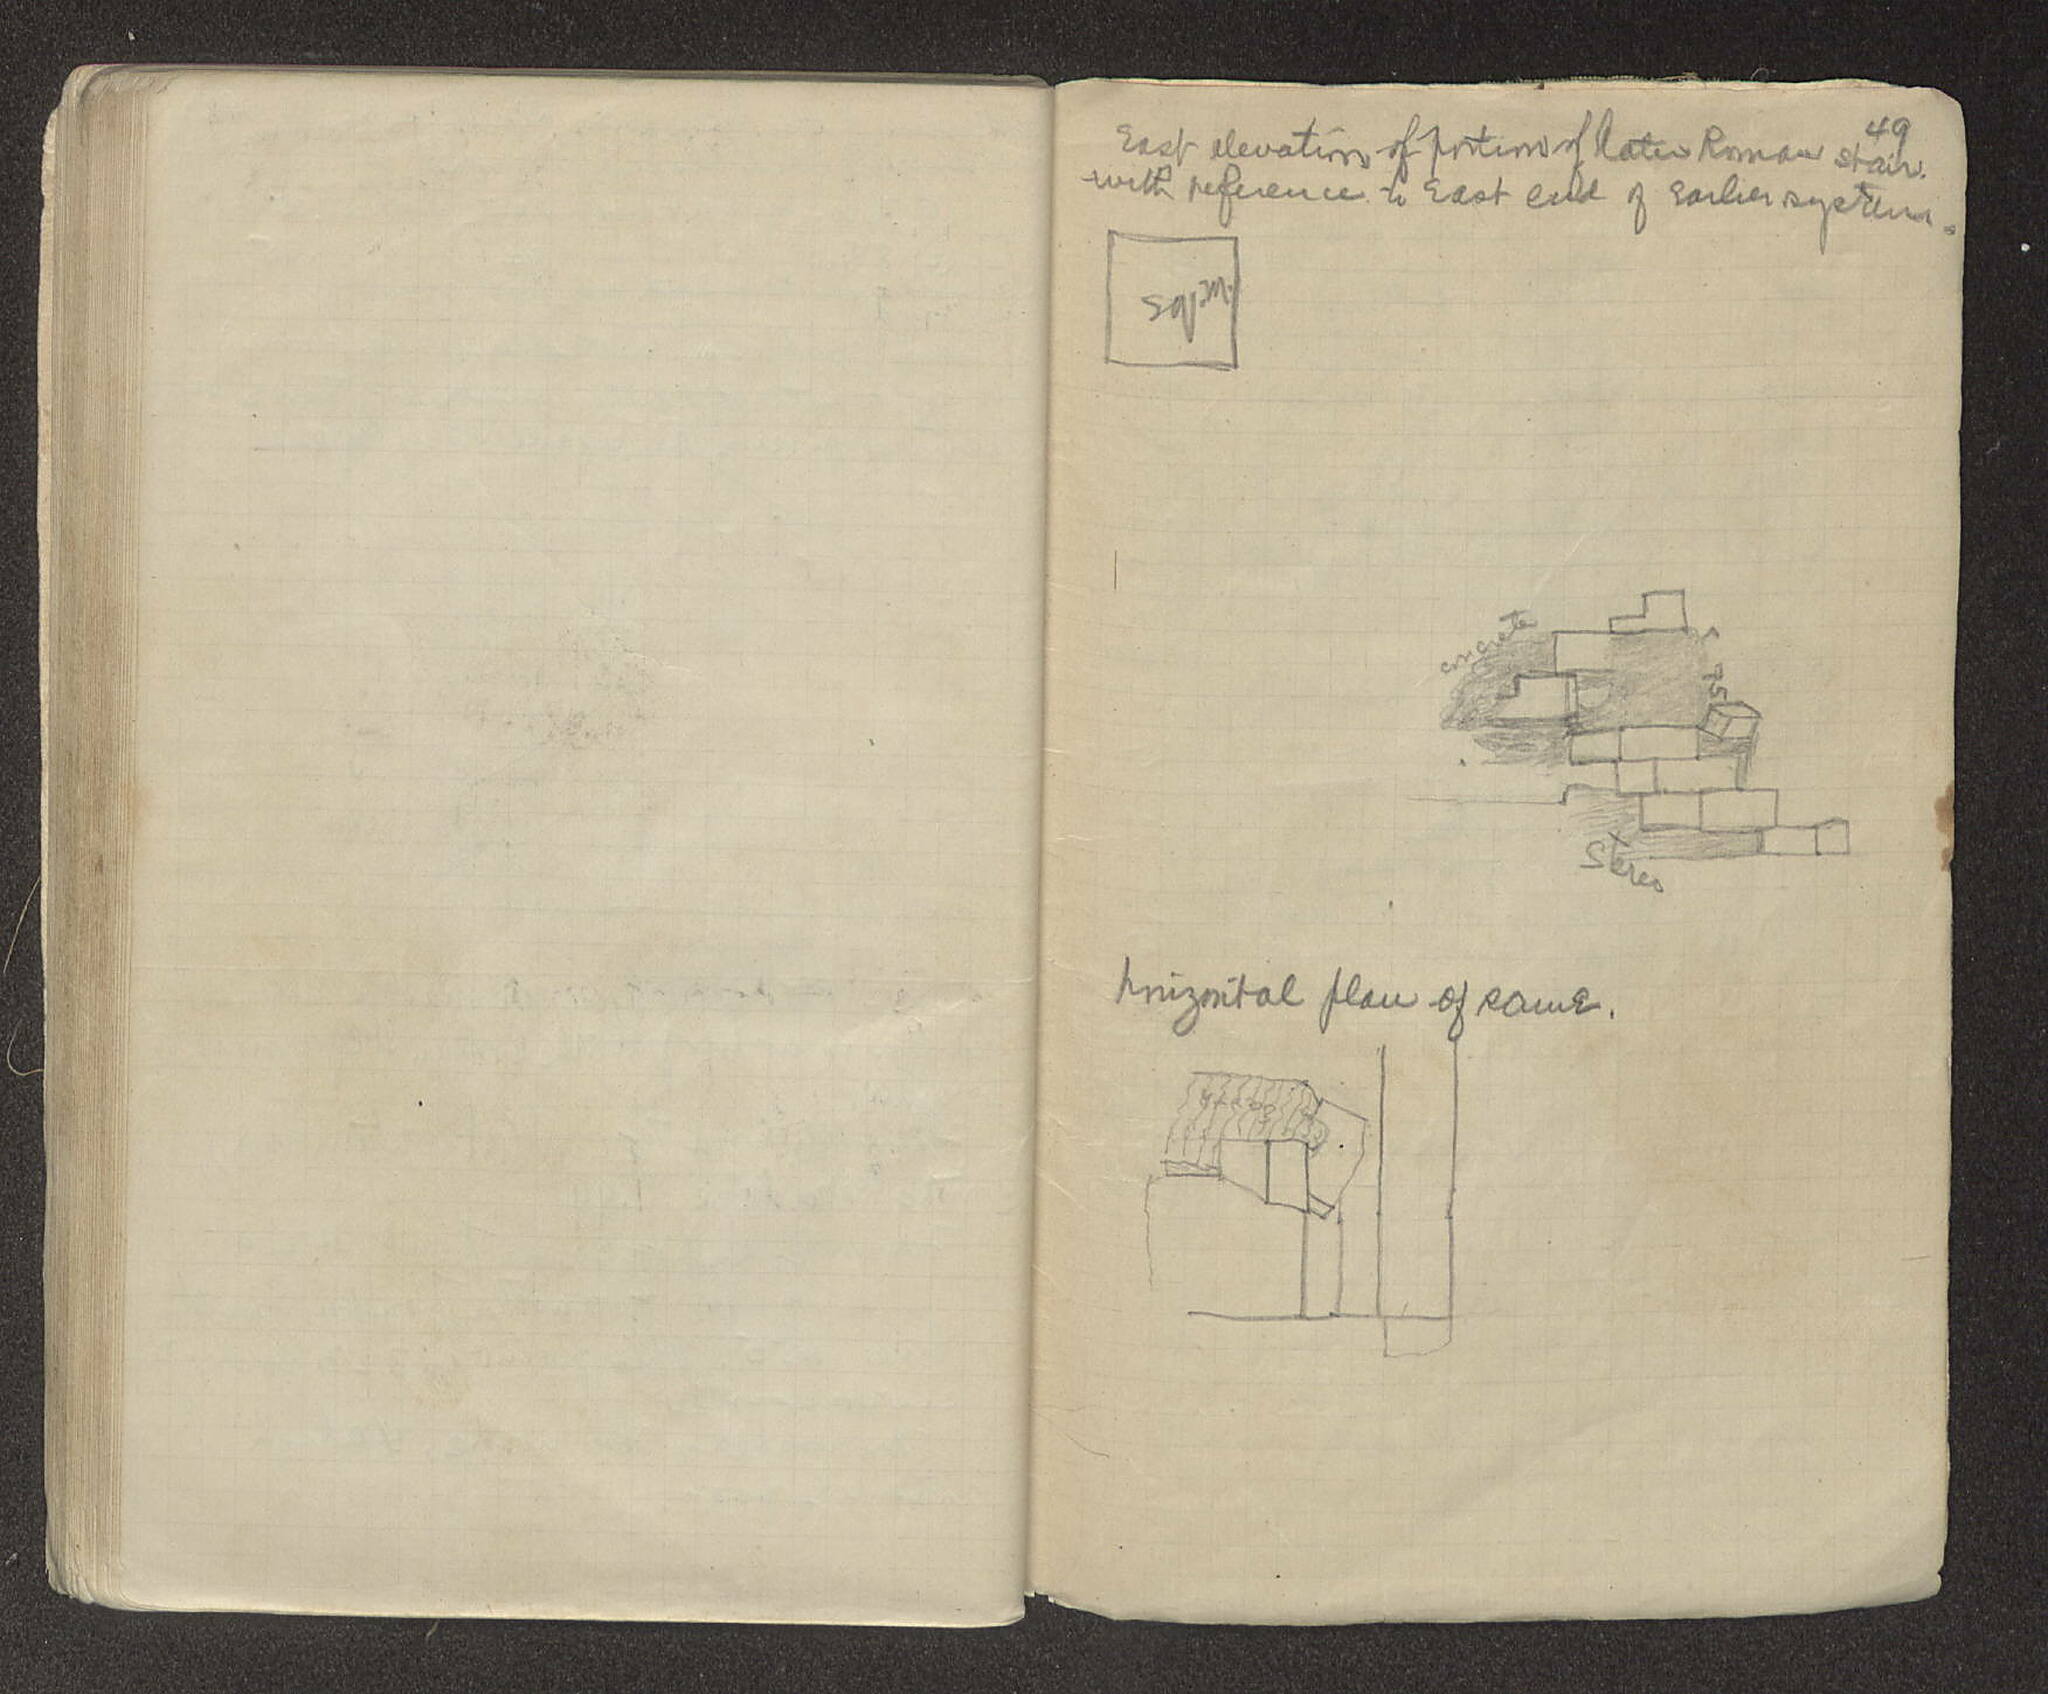 49
East elevation of portion of later Roman stair.
with reference to East end of Earlier system.
Sq. m.
concrete
.75
Stereo
horizontal plan of same.